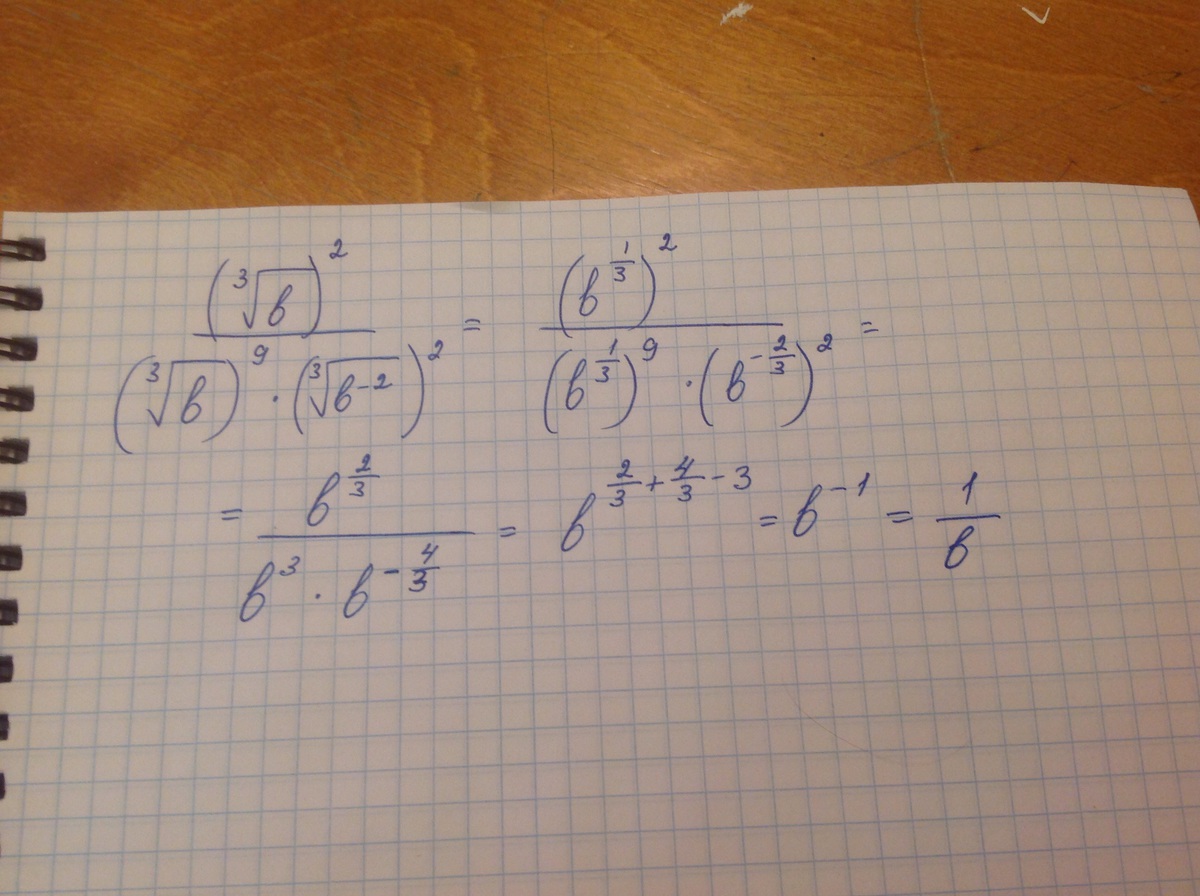 (∛b)² / ((∛b)⁹ · (∛(b⁻²))²) = (b^(1/3))² / ((b^(1/3))⁹ · (b^(-2/3))²) =
= b^(2/3) / (b³ · b^(-4/3)) = b^(2/3 + 4/3 - 3) = b⁻¹ = 1/b